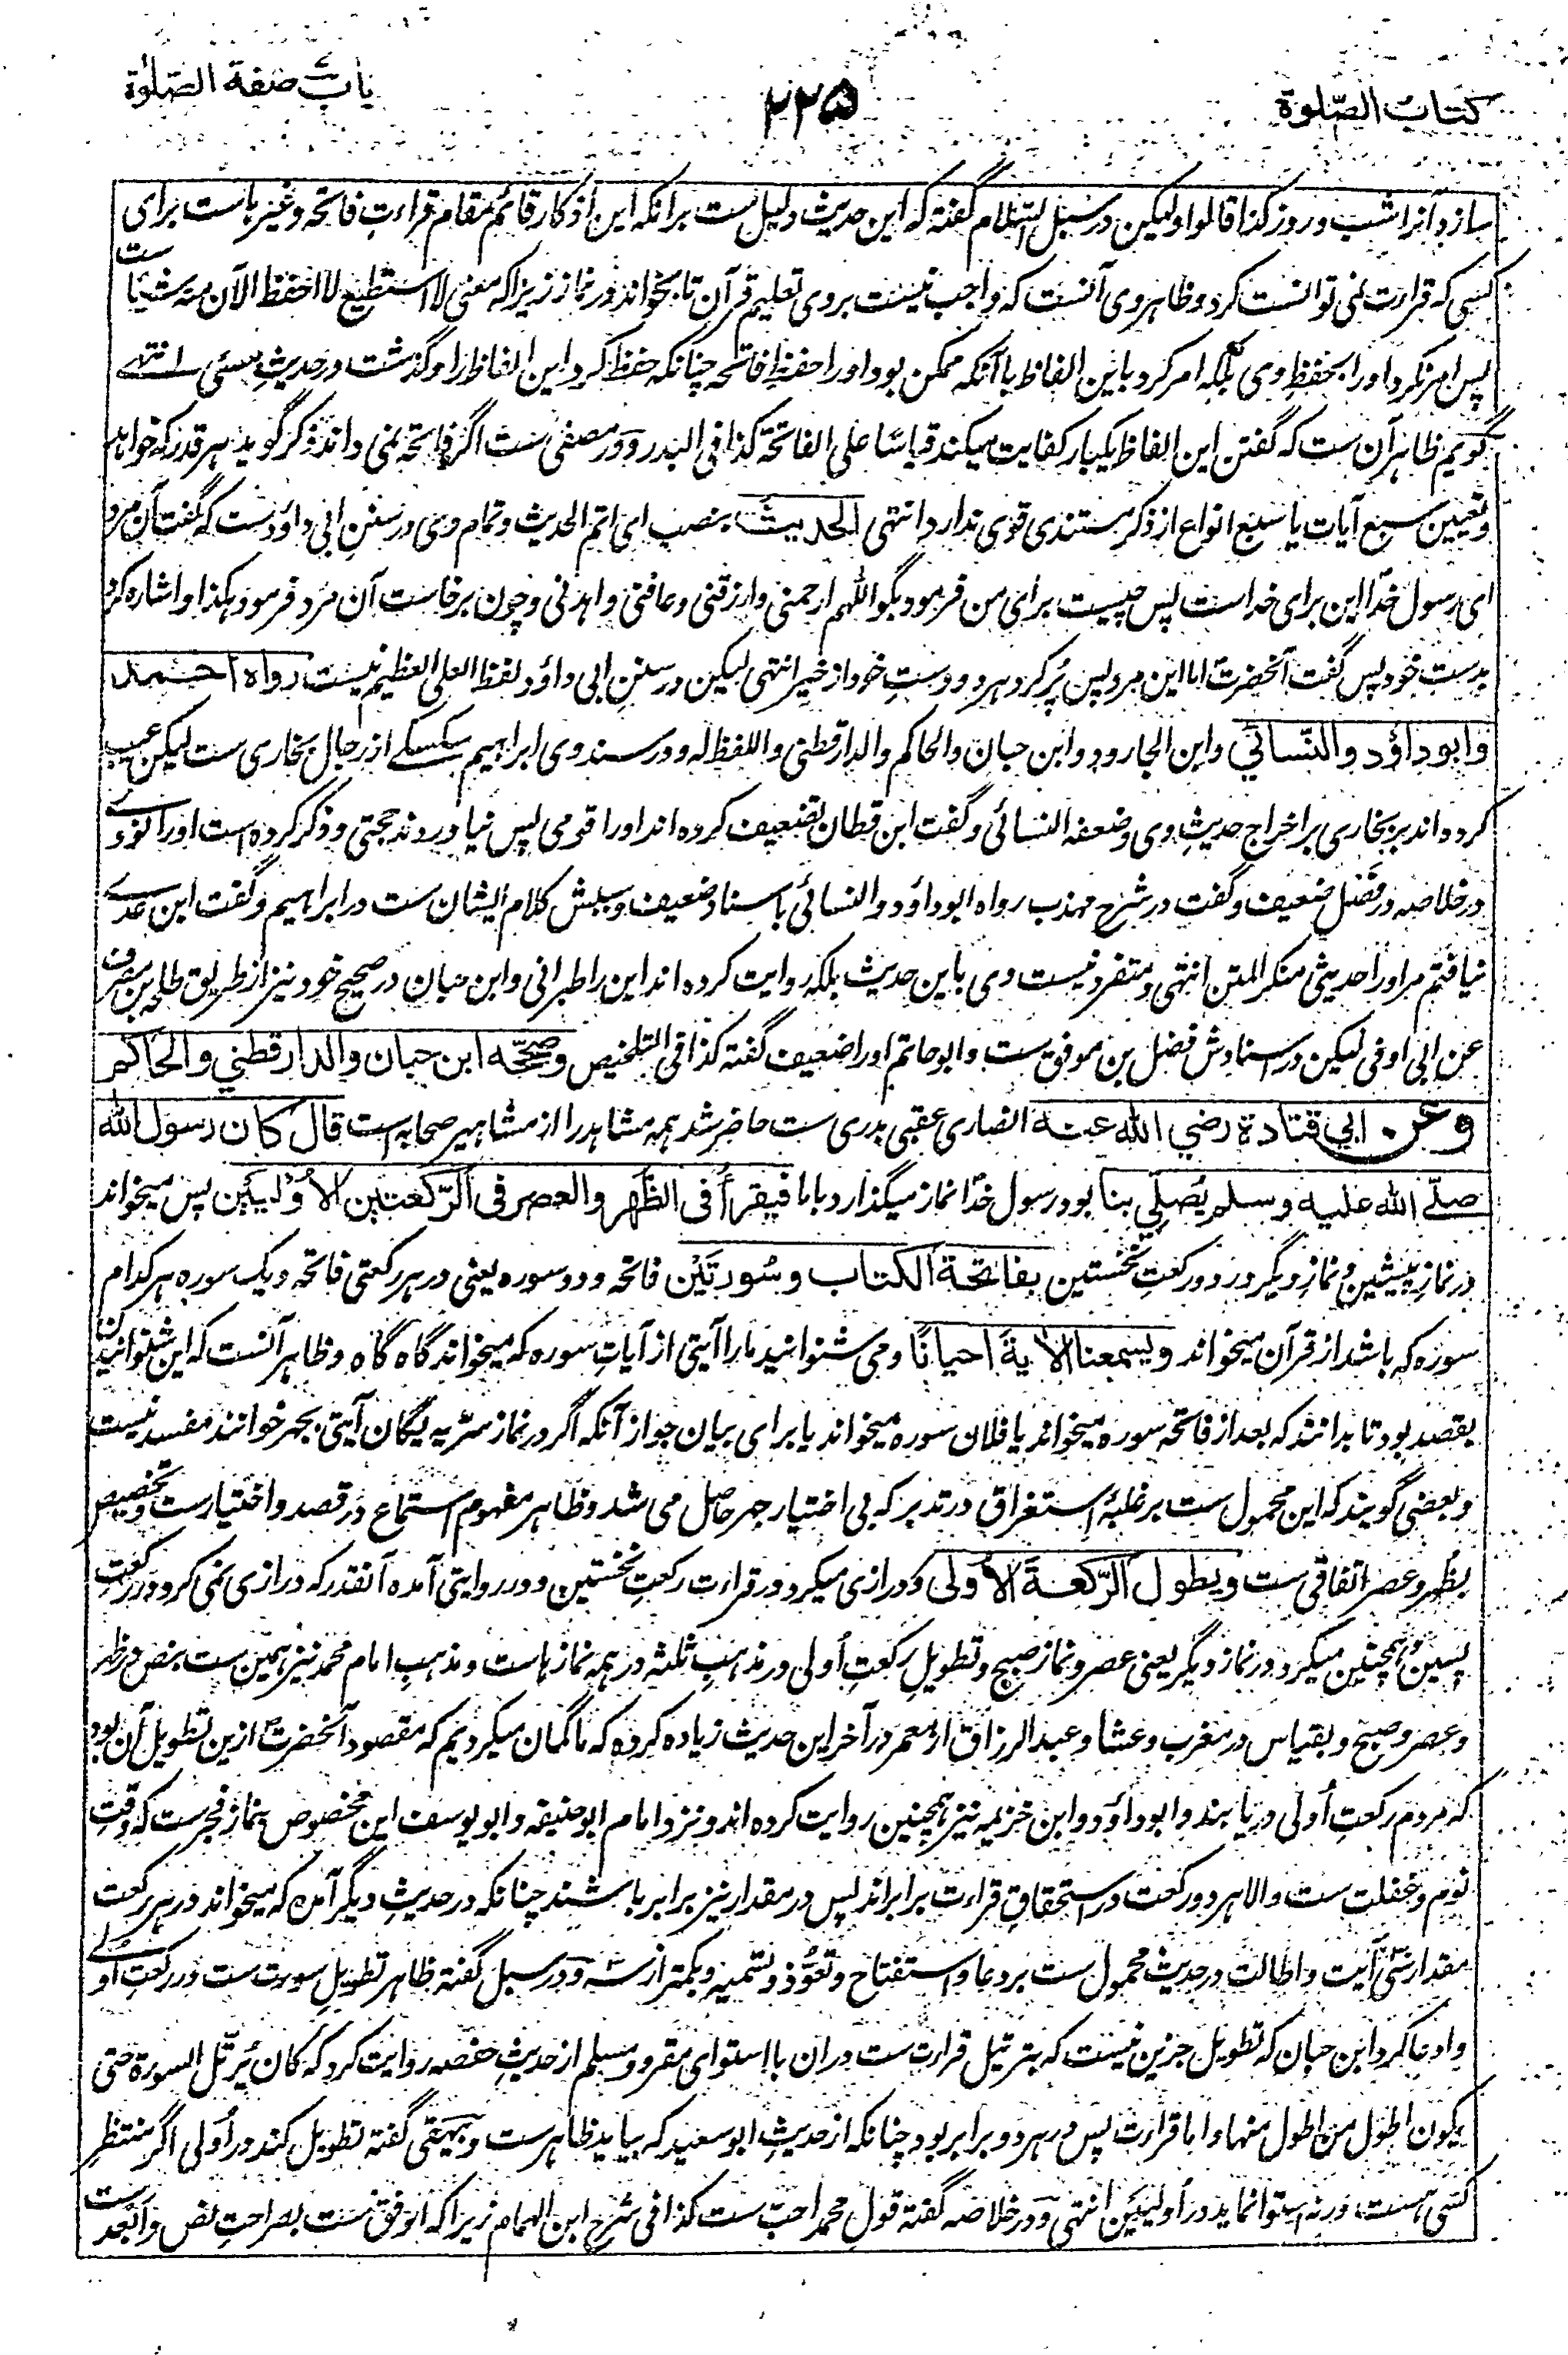 کتاب الصّلوة
۲۲۵
باب صفة الصّلوٰة
سازد آنرا شب و روز کذا قالوا ولیکن در سبل السّلام گفته که این حدیث دلیل ست برانکه این اذکار قائم مقام قراءتِ فاتحه و غیرها ست برای
کسی که قراءت نمی توانست کرد و ظاهر وی آنست که واجب نیست بر وی تعلیم قرآن تا بخواند در نماز زیراکه معنی لا استطیع لا احفظ الآن منه شیئا ست
پس امر نکرد او را بحفظِ وی بلکه امر کرد باین الفاظ با آنکه ممکن بود او را حفظِ فاتحه چنانکه حفظ کرد این الفاظ را و گذشت در حدیثِ مسئی انتهے
گویم ظاهر آن ست که گفتن این الفاظ یکبار کفایت میکند قیاسًا علی الفاتحة کذا فی البدر و در مصفی ست اگر فاتحه نمی داند ذکر گوید هر قدر که خواهد
و تعیین سبع آیات یا سبع انواع از ذکر مستندی قوی ندارد انتهی الحدیثَ بنصب ای اتم الحدیث و تمام وی در سننِ ابی داؤد ست که گفت آن مرد
ای رسول خدا این برای خداست پس چیست برای من فرمود بگو اللهم ارحمنی وارزقنی وعافنی واهدنی و چون برخاست آن مرد فرمود هکذا و اشاره کرد
بدستِ خود پس گفت آنحضرت اما این مرد پس پُر کرد هر دو دستِ خود از خیر انتهی لیکن در سننِ ابی داؤد لفظ العلی العظیم نیست رواه احمد
وابوداؤد والنّسائي وابن الجارود وابن حبان والحاکم والدارقطنی واللفظ له و در سندِ وی ابراهیم سکسکے از رجالِ بخاری ست لیکن عیب
کرده اند بر بخاری بر اخراج حدیثِ وی وضعفه النسائی و گفت ابن قطان تضعیف کرده اند او را قومی پس نیاوردند حجتی و ذکر کرده است او را نووے
در خلاصه در فصل ضعیف و گفت در شرح مهذب رواه ابوداؤد والنسائی باسناد ضعیف و سببش کلام ایشان ست در ابراهیم و گفت ابن عدے
نیافتم مر او را حدیثی منکر المتن انتهی و متفرد نیست وی باین حدیث بلکه روایت کرده اند این را طبرانی و ابن حبان در صحیح خود نیز از طریق طلحه بن مصرف
عن ابی اوفی لیکن در اسنادش فضل بن موفق ست و ابوحاتم او را ضعیف گفته کذا فی التلخیص وصحّحه ابن حبان والدارقطني والحاكم
وعن ابي قتادة رضي الله عنه انصاری عقبی بدری ست حاضر شد همه مشاهد را از مشاهیر صحابه است قال كان رسول الله
صلّے الله علیه وسلم یُصلّي بنا بود رسول خدا نماز میگذارد با ما فیقرأ فی الظهر والعصر فی الرّكعتين الأولیین پس میخواند
در نمازِ پیشین و نمازِ دیگر در دو رکعتِ نخستین بفاتحة الكتاب وسُورتَیْن فاتحه و دو سوره یعنی در هر رکعتی فاتحه و یک سوره هر کدام
سوره که باشد از قرآن میخواند ویسمعنا الاٰیةَ احیانًا و می شنوانید ما را آیتی از آیاتِ سوره که میخواند گاه گاه و ظاهر آنست که این شنوانیدن
بقصد بود تا بدانند که بعد از فاتحه سوره میخواند یا فلان سوره میخواند یا برای بیان جواز آنکه اگر در نماز سرّیه یگان آیتی بجهر خوانند مفسد نیست
و بعضی گویند که این محمول ست بر غلبهٔ استغراق در تدبر که بی اختیار جهر حاصل می شد و ظاهر مفهوم استماع در قصد و اختیار ست و تخصیص
بظُهر و عصر اتفاقی ست ویطول الرّكعةَ الأولی و درازی میکرد در قراءت رکعتِ نخستین و در روایتی آمده آنقدر که درازی نمی کرد در رکعتِ
پسین و همچنین میکرد در نماز دیگر یعنی عصر و نماز صبح و تطویلِ رکعتِ اُولی در مذهبِ ثلثه در همه نمازهاست و مذهبِ امام محمد نیز همین ست بنص در ظهر
و عصر و صبح و بقیاس در مغرب و عشا و عبدالرزاق از معمر در آخر این حدیث زیاده کرده که ما گمان میکردیم که مقصود آنحضرت ازین تطویل آن بود
که مردم رکعتِ اُولی دریابند و ابوداؤد و ابن خزیمه نیز همچنین روایت کرده اند و نزد امام ابوحنیفه و ابویوسف این مخصوص بنماز فجر ست که وقتِ
نوم و غفلت ست و الا هر دو رکعت در استحقاقِ قراءت برابراند پس در مقدار نیز برابر باشند چنانکه در حدیثِ دیگر آمده که میخواند در هر رکعت
مقدار سی آیت و اطالت در حدیث محمول ست بر دعا و استفتاح و تعوُّذ و تسمیه و بکمتر از سه و در سبل گفته ظاهر تطویلِ سورت ست در رکعتِ اُولے
و ادعا کرد ابن حبان که تطویل جز این نیست که بترتیلِ قراءت ست در ان با استوای مقرو و مسلم از حدیثِ حفصه روایت کرد که کان یُرتّل السورة حتی
یکون اطول من اطول منها و اما قراءت پس در هر دو برابر بود چنانکه از حدیثِ ابوسعید که بیاید ظاهر ست و بیهقی گفته تطویل کند در اُولی اگر منتظرِ
کسی ست ورنه استوا نماید در اُولیین انتهی و در خلاصه گفته قولِ محمد احبّ ست کذا فی شرح ابن الهمام زیراکه اوفق ست بصراحتِ نص و ابعد ست